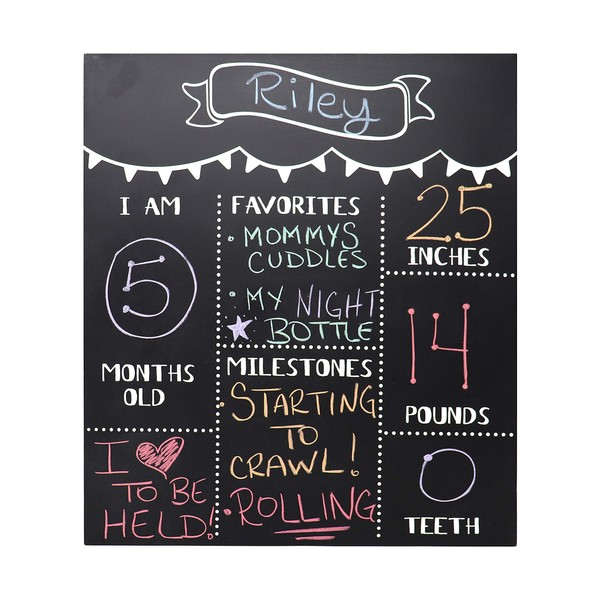 Riley
I AM
5
MONTHS
OLD
I ♥
TO BE
HELD!
FAVORITES
• MOMMYS
CUDDLES
• MY NIGHT
BOTTLE
MILESTONES
• STARTING
TO
CRAWL!
• ROLLING
25
INCHES
14
POUNDS
0
TEETH